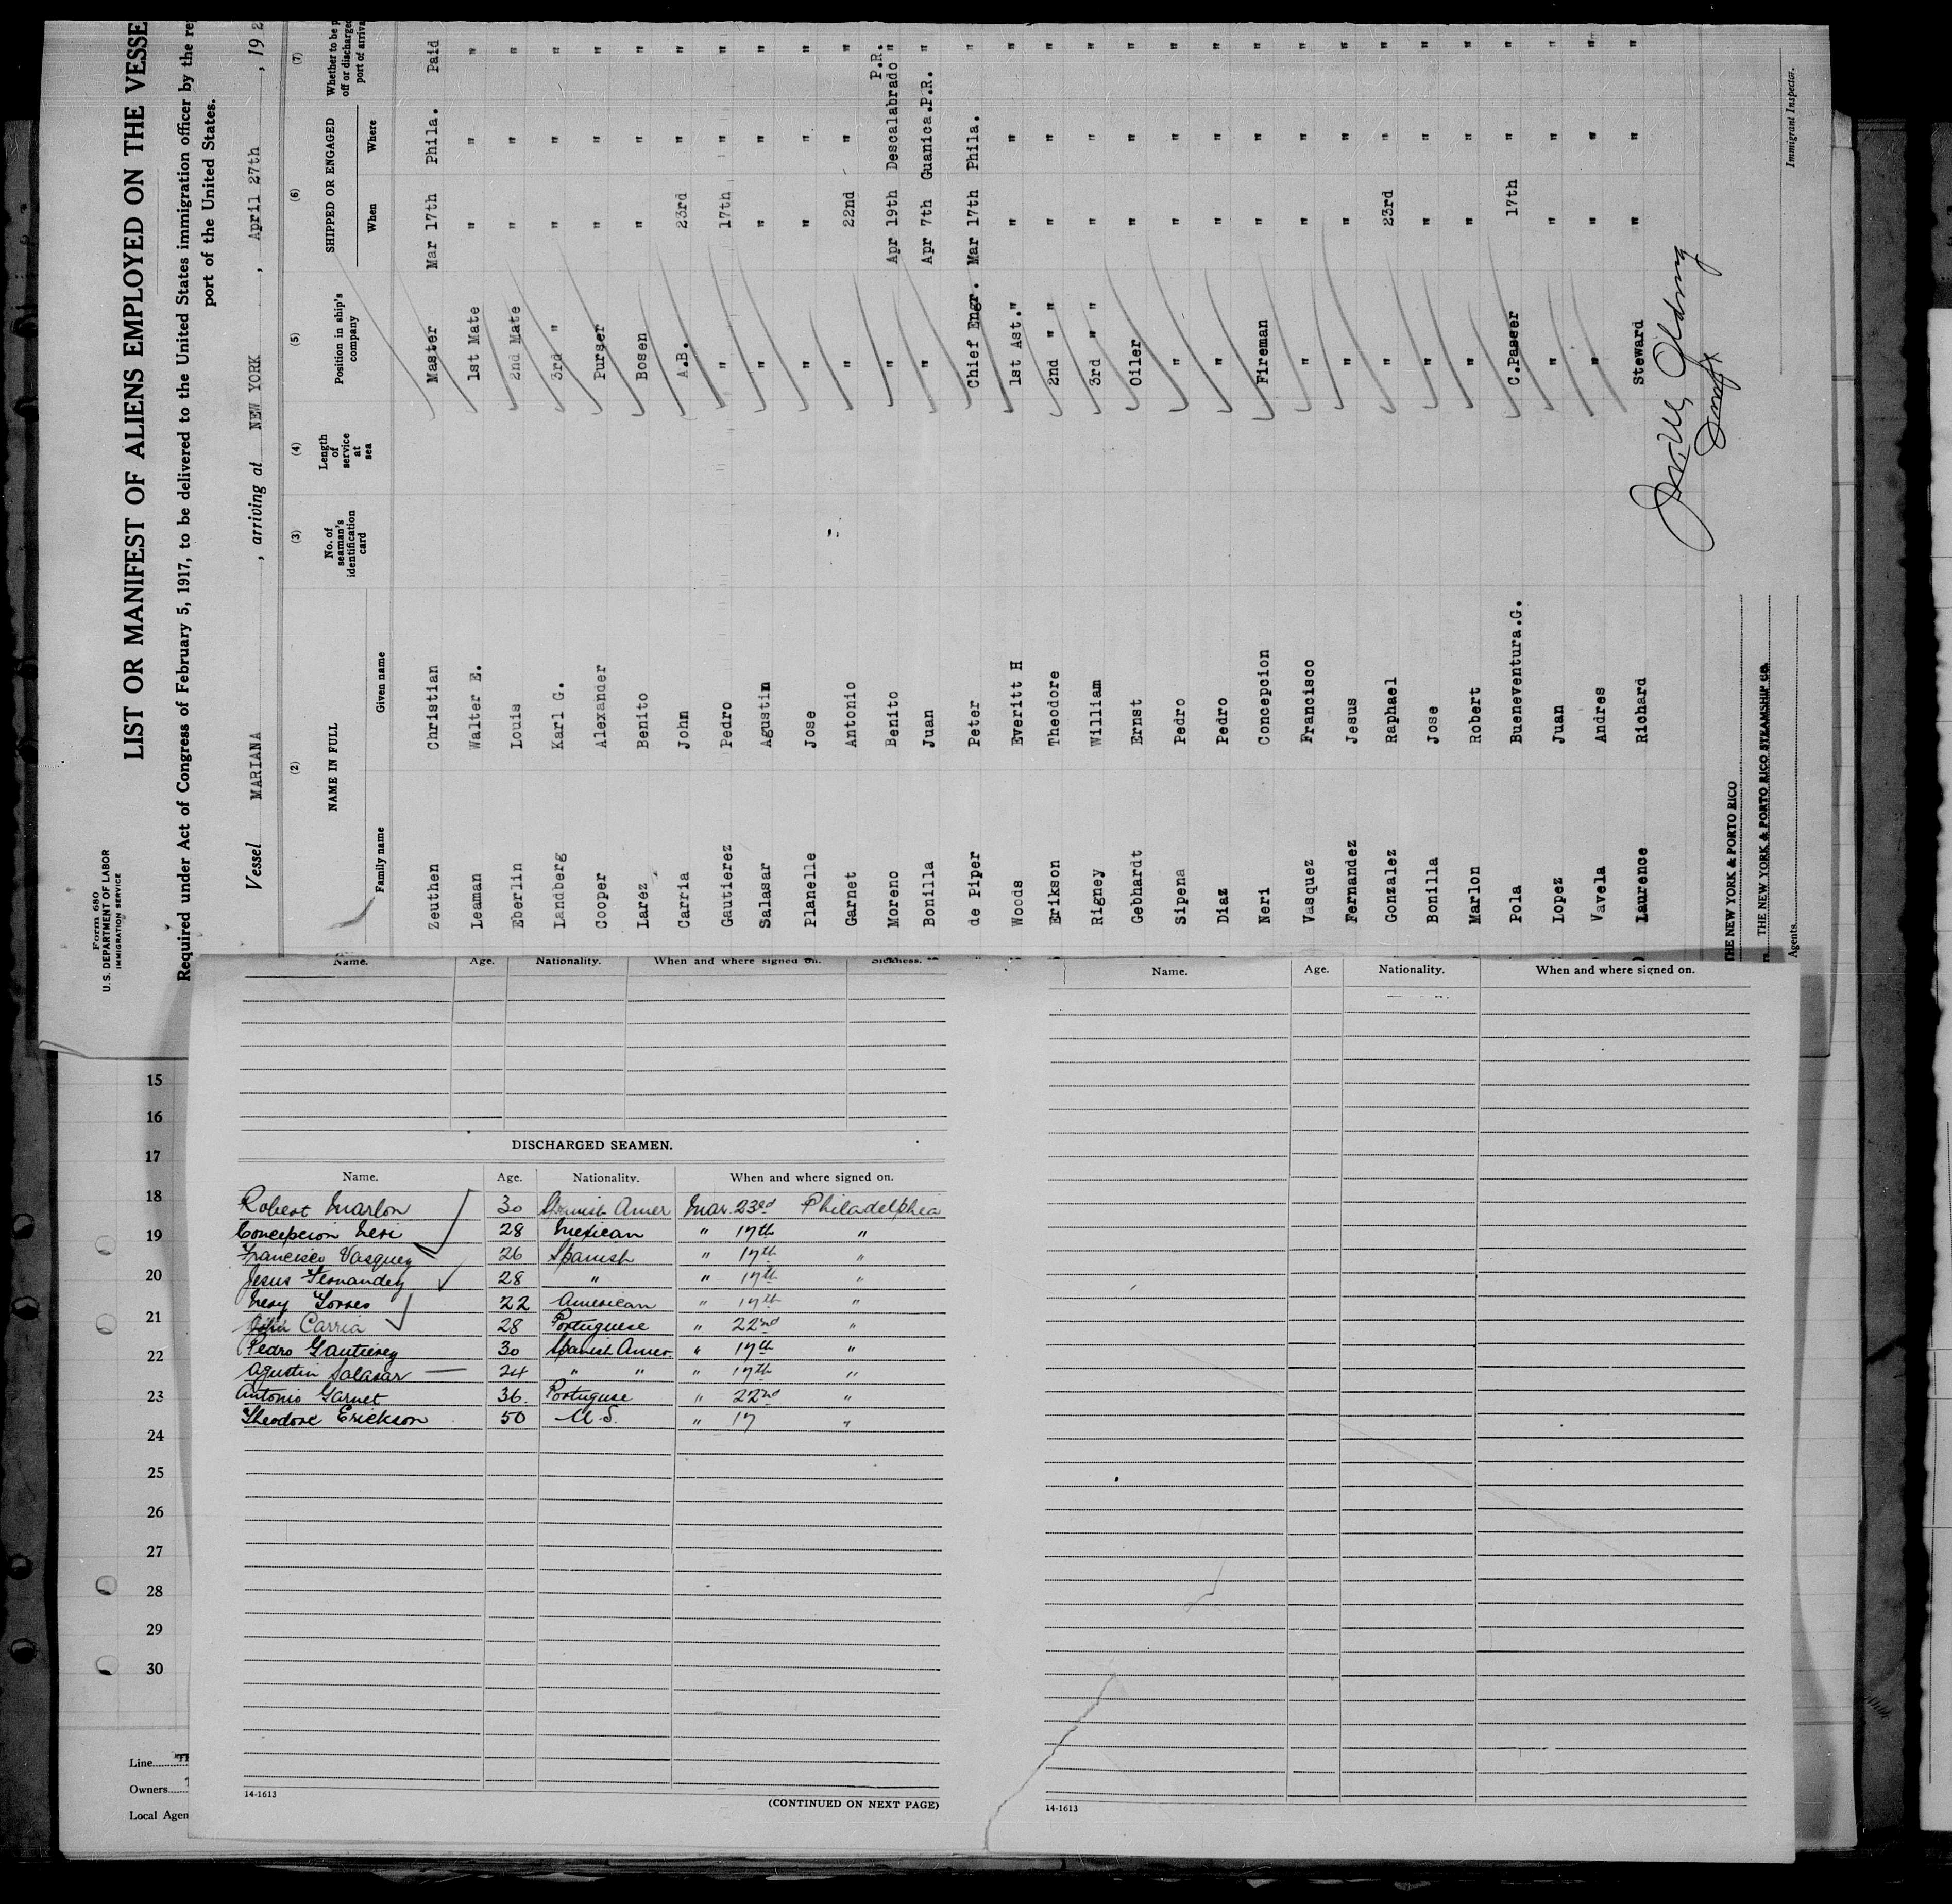 Form 680
U. S. DEPARTMENT OF LABOR
IMMIGRATION SERVICE
LIST OR MANIFEST OF ALIENS EMPLOYED ON THE VESSE
Required under Act of Congress of February 5, 1917, to be delivered to the United States immigration officer by the re
port of the United States.
Vessel MARIANA , arriving at NEW YORK , April 27th , 192
(2) (3) (4) (5) (6) (7)
NAME IN FULL No. of seaman's identification card Length of service at sea Position in ship's company SHIPPED OR ENGAGED Whether to be p off or discharged port of arriva
Family name Given name When Where
Zeuthen Christian Master Mar 17th Phila. Paid
Leaman Walter E. 1st Mate " " "
Eberlin Louis 2nd Mate " " "
Landberg Karl G. 3rd " " " "
Cooper Alexander Purser " " "
Larez Benito Bosen " " "
Carria John A.B. 23rd " "
Gautierez Pedro " 17th " "
Salasar Agustin " " " "
Planelle Jose " " " "
Garnet Antonio " 22nd " "
Moreno Benito " Apr 19th Descalabrado P.R. "
Bonilla Juan " Apr 7th Guanica.P.R. "
de Piper Peter Chief Engr. Mar 17th Phila. "
Woods Everitt H 1st Ast." " " "
Erikson Theodore 2nd " " " " "
Rigney William 3rd " " " " "
Gebhardt Ernst Oiler " " "
Sipena Pedro " " " "
Diaz Pedro " " " "
Neri Concepcion Fireman " " "
Vasquez Francisco " " " "
Fernandez Jesus " " " "
Gonzalez Raphael " 23rd " "
Bonilla Jose " " " "
Marlon Robert " " " "
Pola Bueneventura.G. C.Passer 17th " "
Lopez Juan " " " "
Vavela Andres " " " "
Laurence Richard Steward " " "
THE NEW YORK & PORTO RICO
THE NEW YORK & PORTO RICO STEAMSHIP CO.
Agents
Immigrant Inspector.
Name. Age. Nationality. When and where signed on. Sickness.
Name. Age. Nationality. When and where signed on.
15
16
17
18
19
20
21
22
23
24
25
26
27
28
29
30
DISCHARGED SEAMEN.
Name. Age. Nationality. When and where signed on.
Robert Marlon 30 Spanish Amer Mar. 23rd Philadelphia
Concepcion Neri 28 Mexican " 17th "
Francisco Vasquez 26 Spanish " 17th "
Jesus Fernandez 28 " " 17th "
Nery Torres 22 American " 17th "
John Carria 28 Portuguese " 22nd "
Pedro Gautierez 30 Spanish Amer. " 17th "
Agustin Salasar 24 " " " 17th "
Antonio Garnet 36. Portuguse " 22nd "
Theodore Erickson 50 U.S. " 17 "
Line
Owners
Local Agen
14-1613
(CONTINUED ON NEXT PAGE)
14-1613